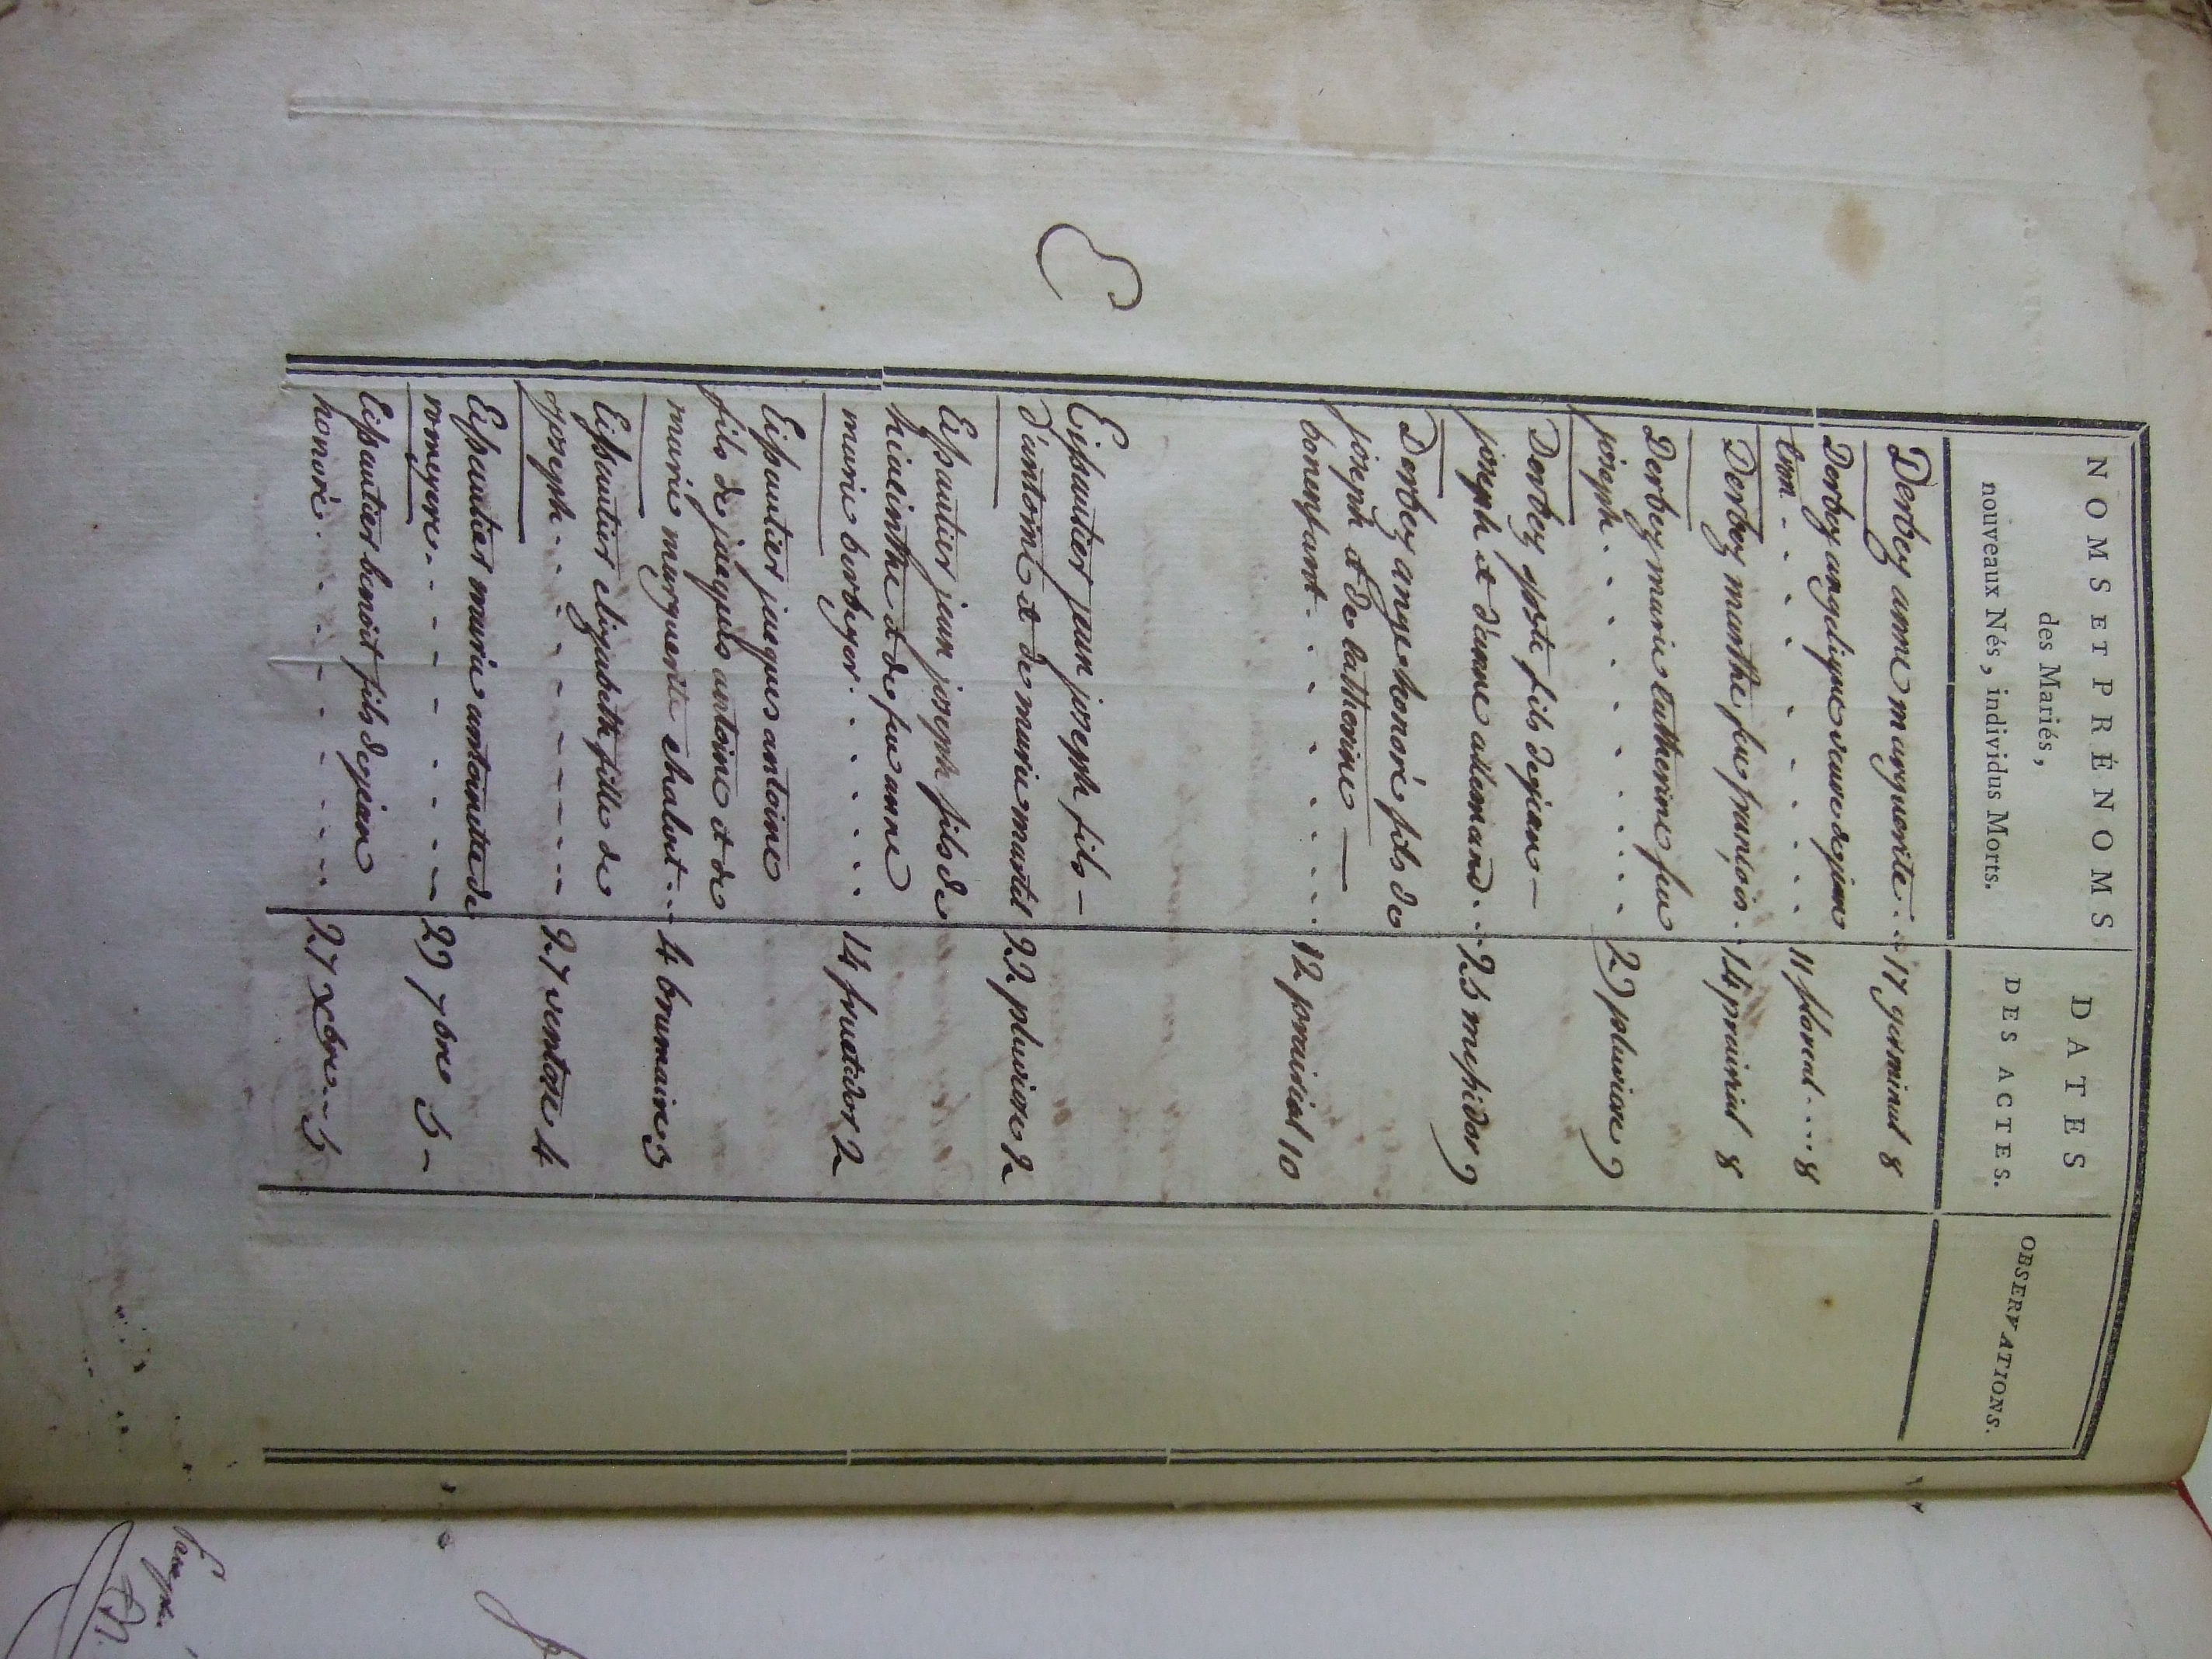 NOMS ET PRÉNOMS
des Mariés,
nouveaux Nés, individus Morts.
DATES
DES ACTES.
OBSERVATIONS.
Derbey anne marguerite . . 17 germinal 8
Derbey angelique veuve de jean
. . . . . . . 11 floreal . . . 8
Derbey marthe feu françois . 14 prairial 8
Derbey marie catherine feu
joseph . . . . . . . . 29 pluviose 9
Derbey joste fils de jean —
joseph et d'anne allemand . . 25 messidor 9
Derbey ange honoré fils de
joseph et de catherine —
bonenfant . . . . . . . 12 prairial 10
E
Eissautier jean joseph fils —
d'antoine et de marie martel 22 pluviose 2
Eissautier jean joseph fils de
hiacinthe et de feu anne
marie berbeyer . . . . . . 14 fructidor 2
Eissautier jacques antoine
fils de jacques antoine et de
marie marguerite chabut . . 4 brumaire 3
Eissautier elizabeth fille de
joseph . . . . . . . . . 27 ventose 4
Eissautier marie antoinette de
romeyere . . . . . . . 29 7bre 5 —
Eissautier benoit fils de jean
honoré . . . . . . . . 27 xbre . . 5